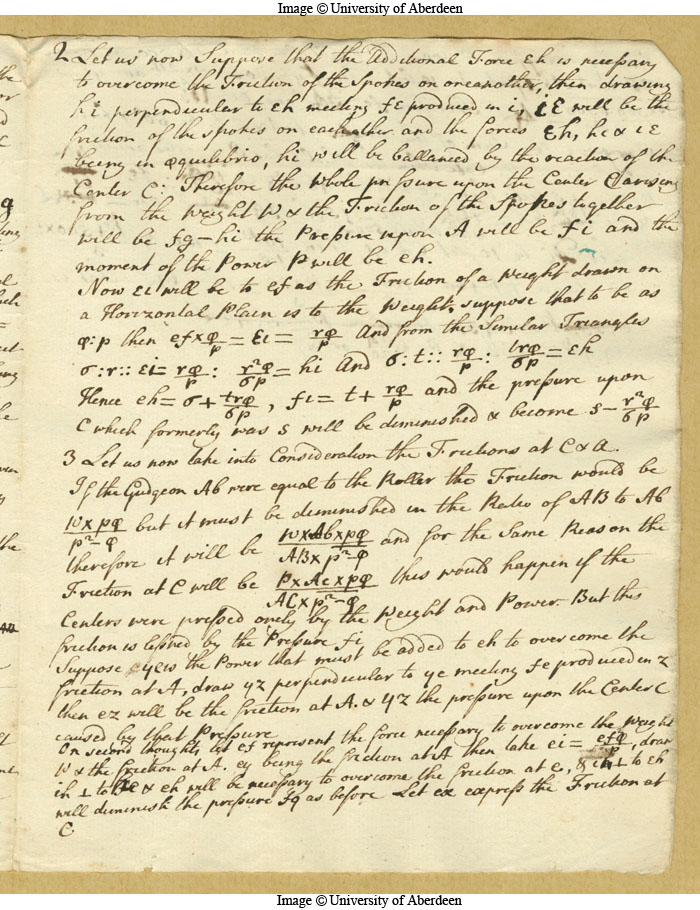 Image © University of Aberdeen
2 Let us now Suppose that the Additional Force εh is necessary
to overcome the Friction of the Spokes on oneanother, then drawing
hi perpendicular to εh meeting fε produced in i, iε will be the
friction of the spokes on each other and the forces εh, hi & iε
being in equilibrio, hi will be ballanced by the reaction of the
Center C: Therefore the whole pressure upon the Center C arising
from the weight W. & the Friction of the Spokes together
will be fg – hi the Pressure upon A will be fi and the
moment of the Power P will be eh.
Now εi will be to ef as the Friction of a weight drawn on
a Horizontal Plain is to the Weight, suppose that to be as
φ:p then ef×φ/p = εi = rφ/p And from the Similar Triangles
σ:r:: εi = rφ/p : r²φ/σp = hi And σ:t:: rφ/p : trφ/σp = εh
Hence eh = σ + trφ/σp, fi = t + rφ/p and the pressure upon
C which formerly was s will be diminished & become s – r²φ/σp
3 Let us now take into Consideration the Frictions at C & A.
If the Gudgeon Ab were equal to the Roller the Friction would be
W×pφ/p²–φ but it must be diminished in the Ratio of AB to Ab
therefore it will be W×Ab×pφ/AB×p²–φ and for the Same Reason the
Friction at C will be P×Ac×pφ/AC×p²–φ this would happen if the
Centers were pressed onely by the Weight and Power. But this
friction is lessned by the Pressure fi
Suppose ey is the Power that must be added to eh to overcome the
friction at A, draw yz perpendicular to ye meeting fe produced in z
then ez will be the friction at A. & yz the pressure upon the Center C
caused by that Pressure
On second thoughts, let ef represent the force necessary to overcome the Weight
W & the friction at A. ey being the friction at A then take ei = efφ/p, draw
ih ⊥ to & eh will be necessary to overcome the friction at e, & ih ⊥ to εh
will diminish the pressure fg as before Let ex express the Friction at
C
Image © University of Aberdeen